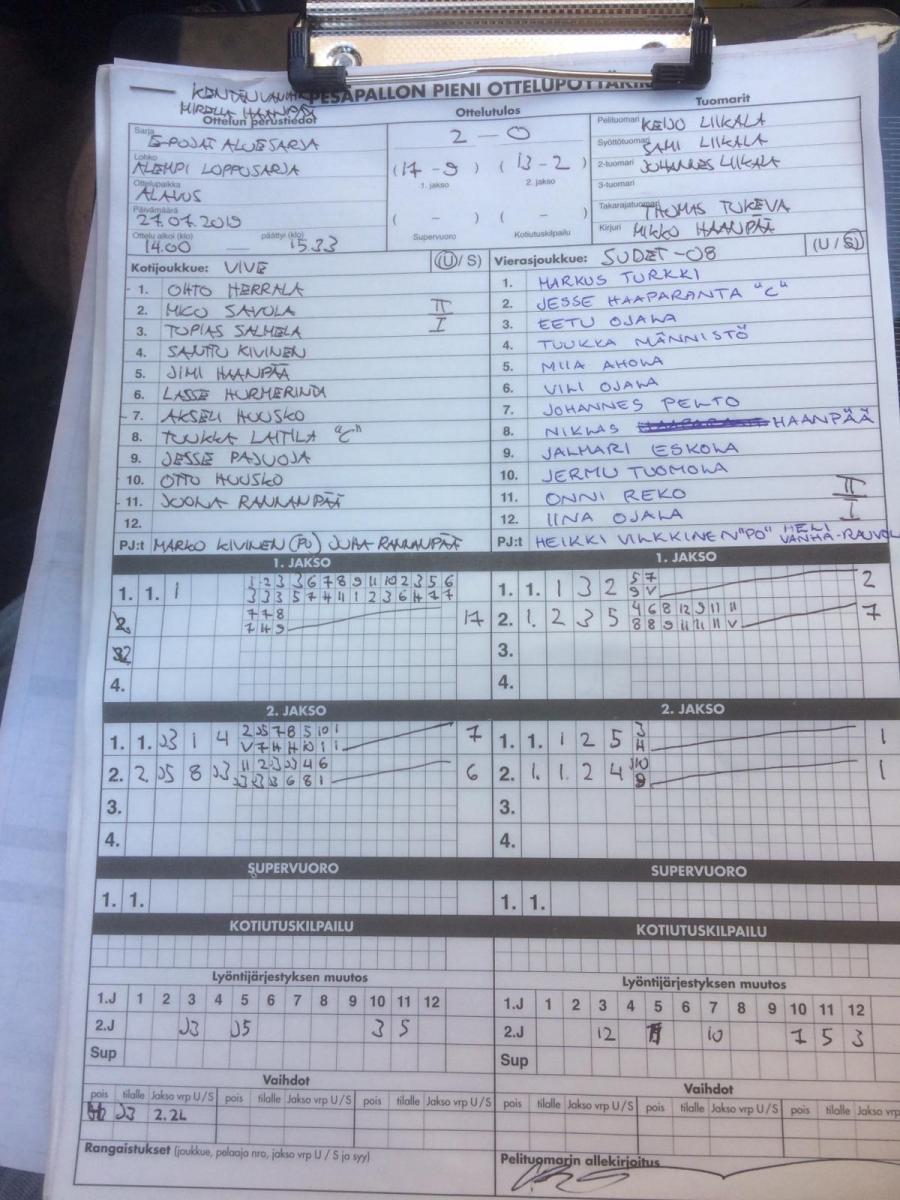 PESÄPALLON PIENI OTTELUPÖYTÄKIRJA
MIRELLA HAANPÄÄ
Ottelun perustiedot
Sarja
E-POJAT ALUESARJA
Lohko
ALEMPI LOPPUSARJA
Ottelupaikka
ALAVUS
Päivämäärä
27.07.2019
Ottelu alkoi (klo) päättyi (klo)
14.00 15.33
Ottelutulos
2 - 0
(17 - 9) (13 - 2)
1. jakso 2. jakso
( - ) ( - )
Supervuoro Kotiutuskilpailu
Tuomarit
Pelituomari KEIJO LIIKALA
Syöttötuomari SAMI LIIKALA
2-tuomari JOHANNES LIIKALA
3-tuomari
Takarajatuomari THOMAS TUKEVA
Kirjuri MIKKO HAANPÄÄ
Kotijoukkue: VIVE (U / S)
1. OHTO HERRALA
2. MICO SAVOLA II
3. TOPIAS SALMELA I
4. SANTTU KIVINEN
5. JIMI HAANPÄÄ
6. LASSE HURMERINTA
7. AKSELI HUUSKO
8. TUUKKA LAITILA "C"
9. JESSE PAJUOJA
10. OTTO HUUSKO
11. JOONA RANNANPÄÄ
12.
PJ:t MARKO KIVINEN (PJ) JUHA RANNANPÄÄ
Vierasjoukkue: SUDET -08 (U / S)
1. MARKUS TURKKI
2. JESSE HAAPARANTA "C"
3. EETU OJALA
4. TUUKKA MÄNNISTÖ
5. MIIA AHOLA
6. VILI OJALA
7. JOHANNES PELTO
8. NIKLAS HAANPÄÄ
9. JALMARI ESKOLA
10. JERMU TUOMOLA
11. ONNI REKO II
12. IINA OJALA I
PJ:t HEIKKI VILKKINEN "PJ" HELI VANHA-RAUVOLA
1. JAKSO
1. 1. 1 1 2 3 3 6 7 8 9 11 10 2 3 5 6
3 3 3 5 7 4 11 1 2 3 6 4 7 7
2. 7 7 8 17
7 4 9
4.
1. JAKSO
1. 1. 1 3 2 5 7 2
9 V
2. 1. 2 3 5 4 6 8 12 9 11 11 7
8 8 9 11 11 11 V
3.
4.
2. JAKSO
1. 1. J3 1 4 2 J5 7 8 5 10 1 7
V 7 4 4 10 1 1
2. 2 J5 8 J3 11 2 J3 J3 4 6 6
J3 J3 J3 6 8 1
3.
4.
2. JAKSO
1. 1. 1 2 5 3 1
4
2. 1. 1 2 4 J10 1
9
3.
4.
SUPERVUORO
1. 1.
SUPERVUORO
1. 1.
KOTIUTUSKILPAILU
KOTIUTUSKILPAILU
Lyöntijärjestyksen muutos
1.J 1 2 3 4 5 6 7 8 9 10 11 12
2.J J3 J5 3 5
Sup
Lyöntijärjestyksen muutos
1.J 1 2 3 4 5 6 7 8 9 10 11 12
2.J 12 10 7 5 3
Sup
Vaihdot
pois tilalle Jakso vrp U/S pois tilalle Jakso vrp U/S pois tilalle Jakso vrp U/S
J3 2.2L
Vaihdot
pois tilalle Jakso vrp U/S pois tilalle Jakso vrp U/S pois tilalle Jakso vrp
Rangaistukset (joukkue, pelaaja nro, jakso vrp U / S ja syy)
Pelituomarin allekirjoitus